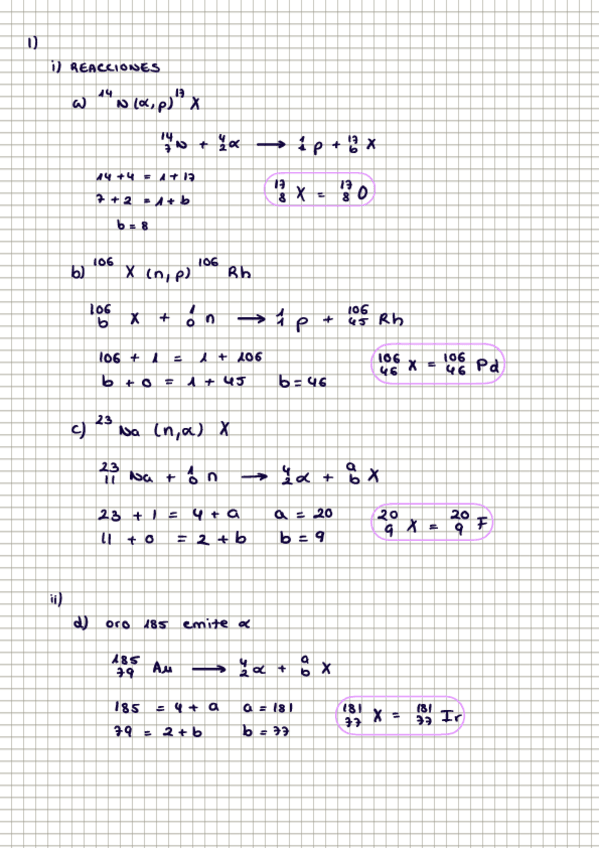 1)
i) REACCIONES
a) ¹⁴N (α, p) ¹⁷X
¹⁴₇N + ⁴₂α → ¹₁p + ¹⁷_b X
14 + 4 = 1 + 17
7 + 2 = 1 + b
b = 8
¹⁷₈X = ¹⁷₈O
b) ¹⁰⁶X (n, p) ¹⁰⁶Rh
¹⁰⁶_b X + ¹₀n → ¹₁p + ¹⁰⁶₄₅Rh
106 + 1 = 1 + 106
b + 0 = 1 + 45 b = 46
¹⁰⁶₄₆X = ¹⁰⁶₄₆Pd
c) ²³Na (n, α) X
²³₁₁Na + ¹₀n → ⁴₂α + ᵃ_b X
23 + 1 = 4 + a a = 20
11 + 0 = 2 + b b = 9
²⁰₉X = ²⁰₉F
ii)
d) oro 185 emite α
¹⁸⁵₇₉Au → ⁴₂α + ᵃ_b X
185 = 4 + a a = 181
79 = 2 + b b = 77
¹⁸¹₇₇X = ¹⁸¹₇₇Ir